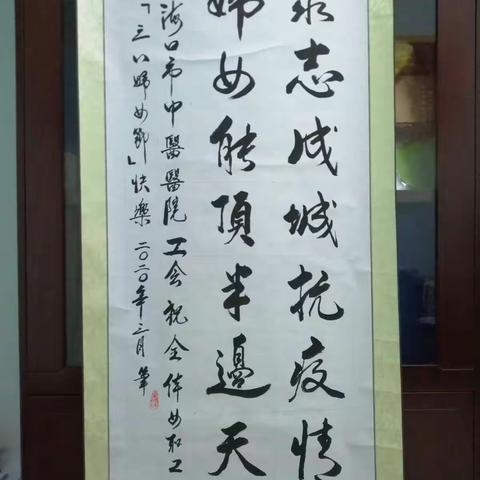 衆志成城抗疫情
婦女能頂半邊天
海口市中醫醫院工会祝全体女职工
「三八婦女節」快樂 二〇二〇年三月